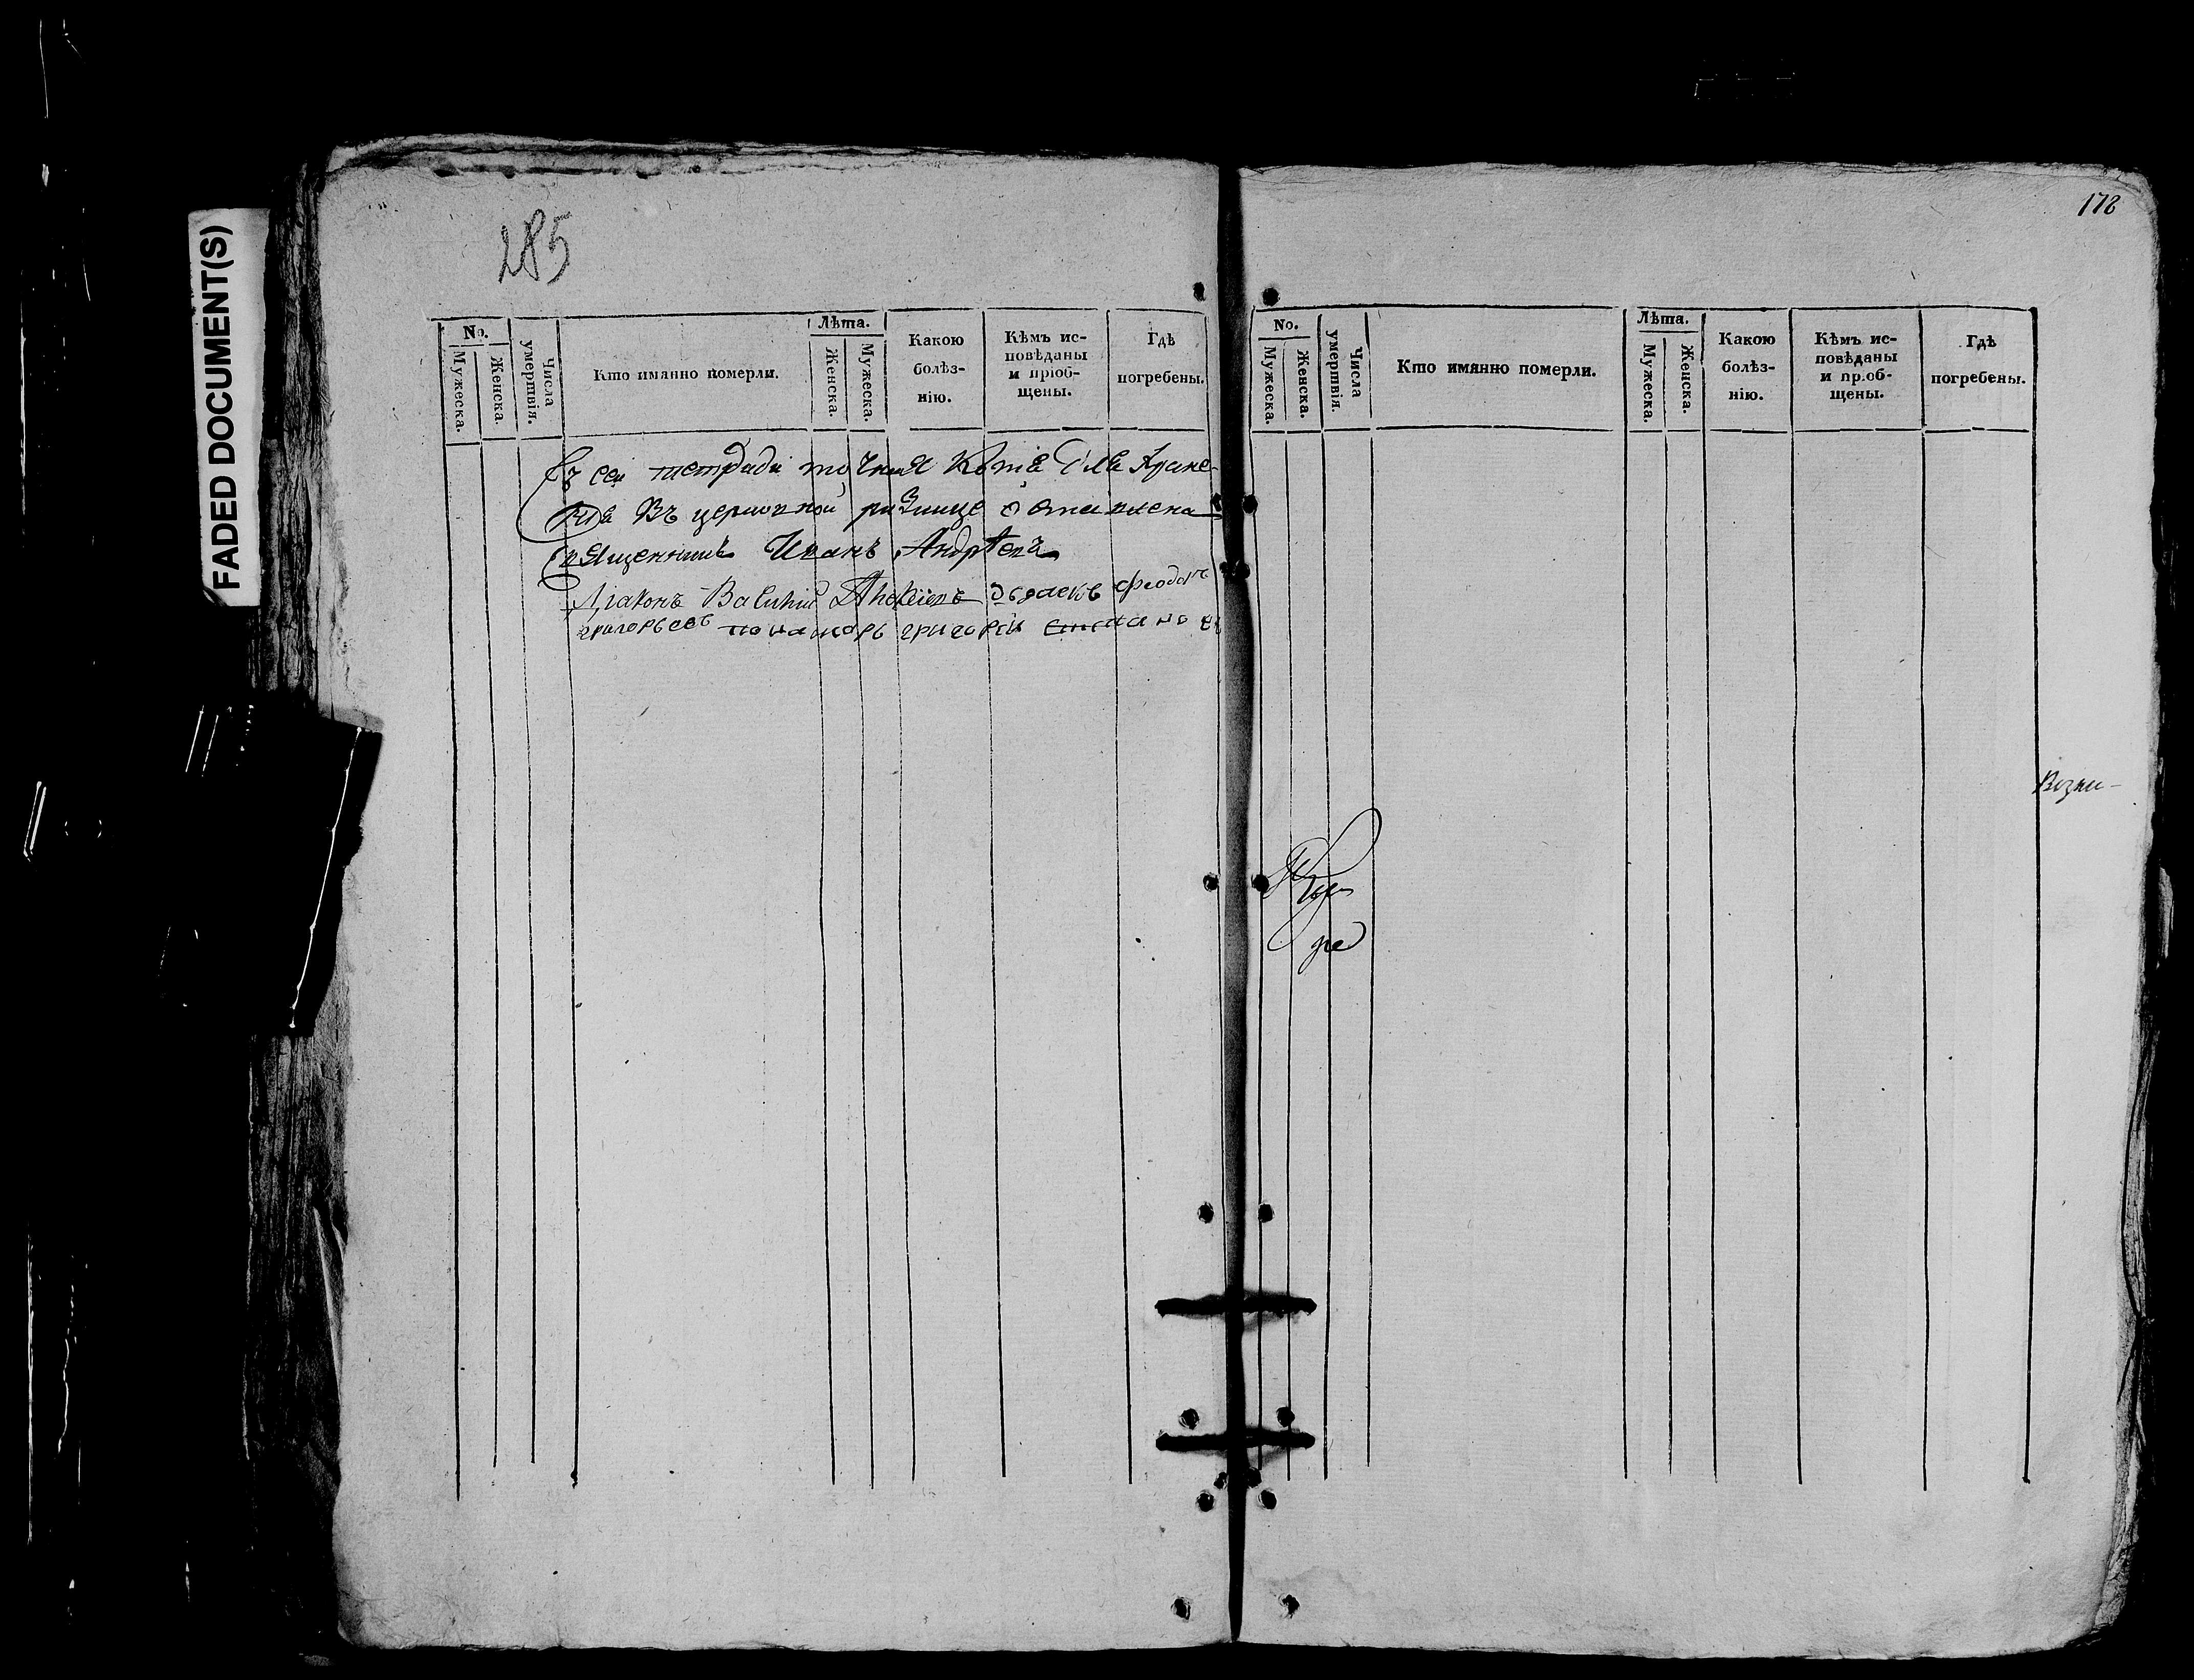 FADED DOCUMENT(S)
285
No.
Мужеска.
Женска.
Числа умертвія.
Кто имянно померли.
Лѣта.
Женска.
Мужеска.
Какою болѣз-
нію.
Кѣмъ ис-
повѣданы
и пріоб-
щены.
Гдѣ
погребены.
Съ сей тетради точная копія для хране-
нія Въ церковной ризнице оставлена
Священникъ Иванъ Андрѣевъ
Діаконъ Василий Алексіевъ дьячекъ феодоръ
григорьевъ пономорь григорей
178
No.
Мужеска.
Женска.
Числа умертвія.
Кто имянно померли.
Лѣта.
Мужеска.
Женска.
Какою
болѣз-
нію.
Кѣмъ ис-
повѣданы
и пріоб-
щены.
Гдѣ
погребены.